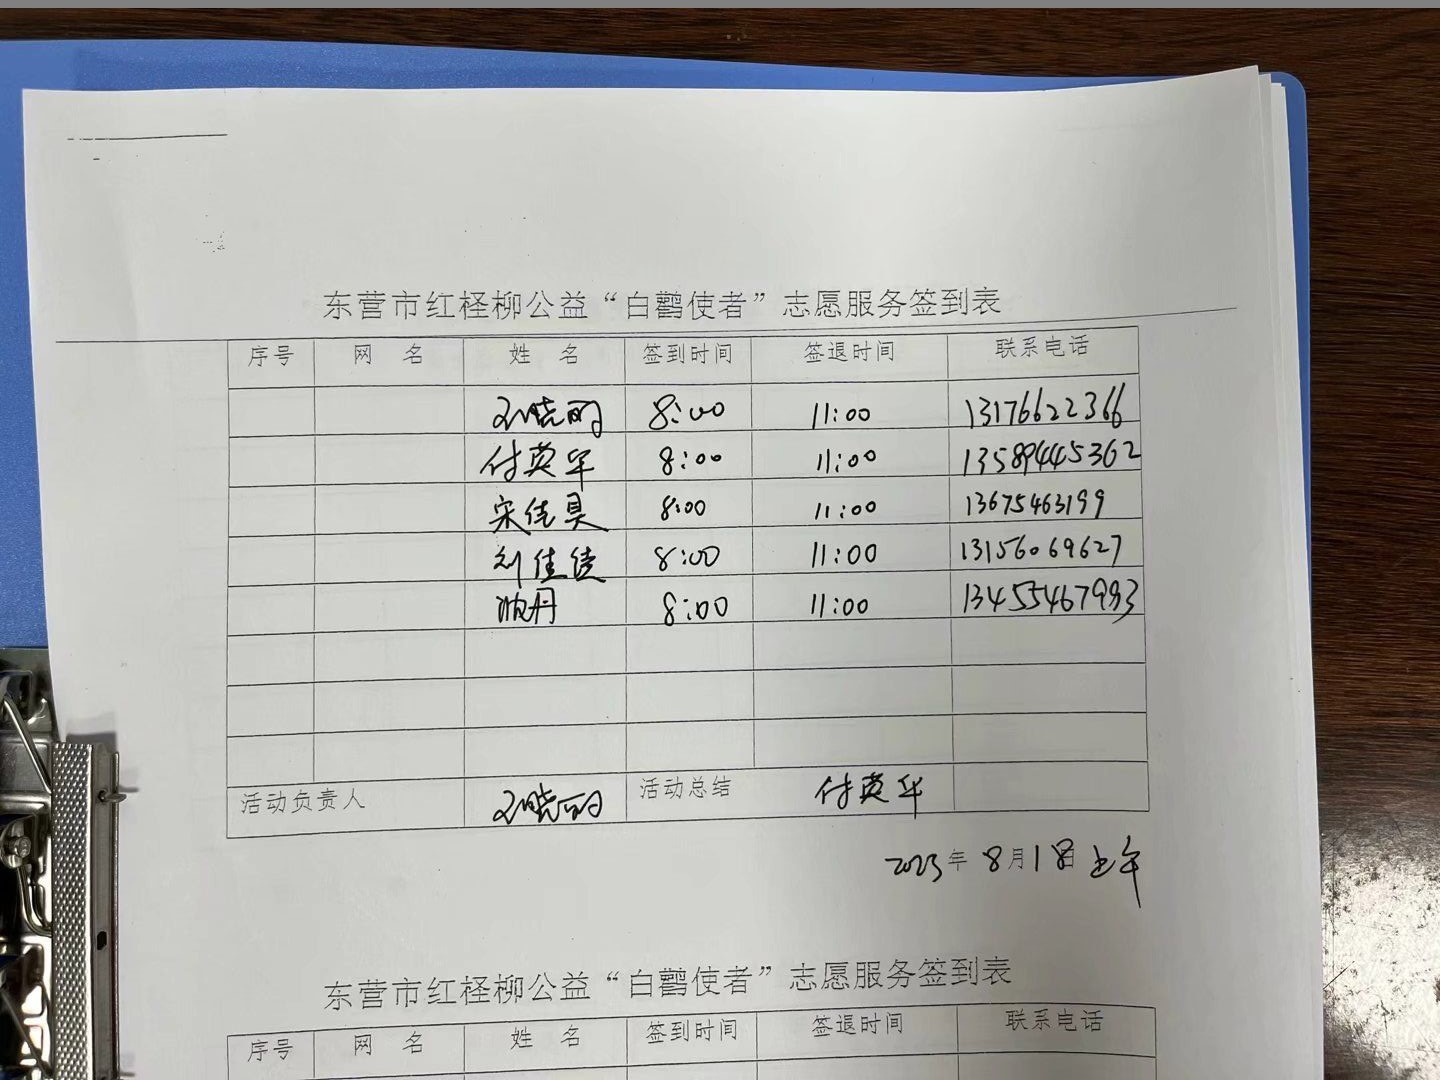 东营市红柽柳公益“白鹳使者”志愿服务签到表
序号 网 名 姓 名 签到时间 签退时间 联系电话
8:00 11:00 13176622366
付英华 8:00 11:00 13589445362
宋佳具 8:00 11:00 13675463199
刘佳佳 8:00 11:00 13156069627
丹 8:00 11:00 13455467993
活动负责人 活动总结 付英华
2023年 8月18日 上午
东营市红柽柳公益“白鹳使者”志愿服务签到表
序号 网 名 姓 名 签到时间 签退时间 联系电话